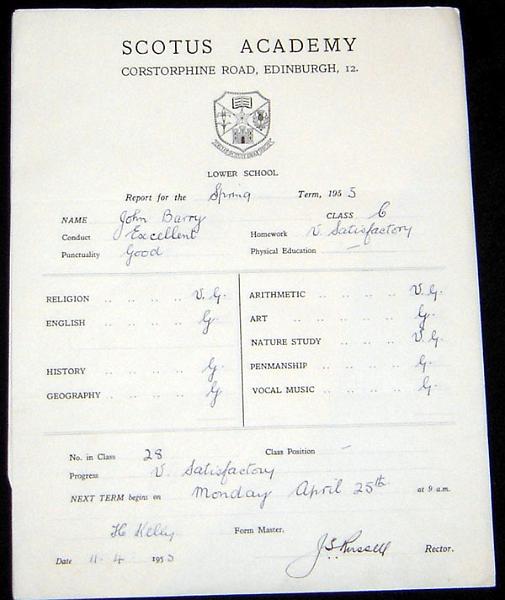 SCOTUS ACADEMY
CORSTORPHINE ROAD, EDINBURGH, 12.
LOWER SCHOOL
Report for the Spring Term, 1955
NAME John Barry CLASS 6
Conduct Excellent Homework V Satisfactory
Punctuality Good Physical Education —
RELIGION .. .. .. .. V. G. ARITHMETIC .. .. .. .. V. G.
ENGLISH .. .. .. .. G. ART .. .. .. .. G.
NATURE STUDY .. .. .. V. G.
HISTORY .. .. .. .. G. PENMANSHIP .. .. .. G.
GEOGRAPHY .. .. .. G VOCAL MUSIC .. .. .. G.
No. in Class 28 Class Position —
Progress V. Satisfactory
NEXT TERM begins on Monday April 25th at 9 a.m.
Form Master.
J.S. Russell Rector.
Date 11. 4 1955